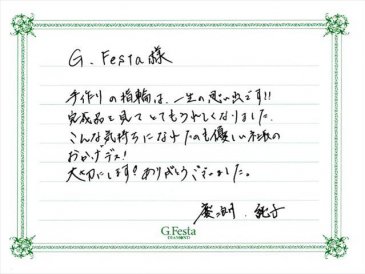 G. Festa 様
手作りの指輪は、一生の思い出です!!
完成品を見てとてもうれしくなりました。
こんな気持ちになれたのも優しい社員の
おかげデス!
大切にします!ありがとうございました。
G.Festa
DIAMOND